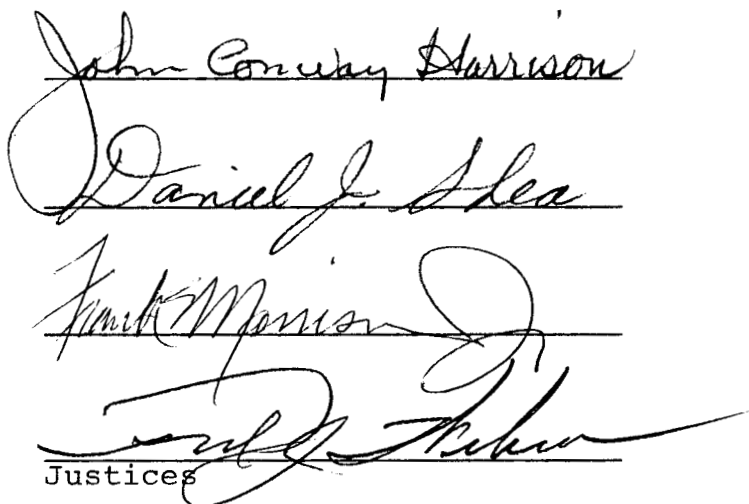 John Conway Harrison
Daniel J. Shea
Frank Morrison Jr
Justices